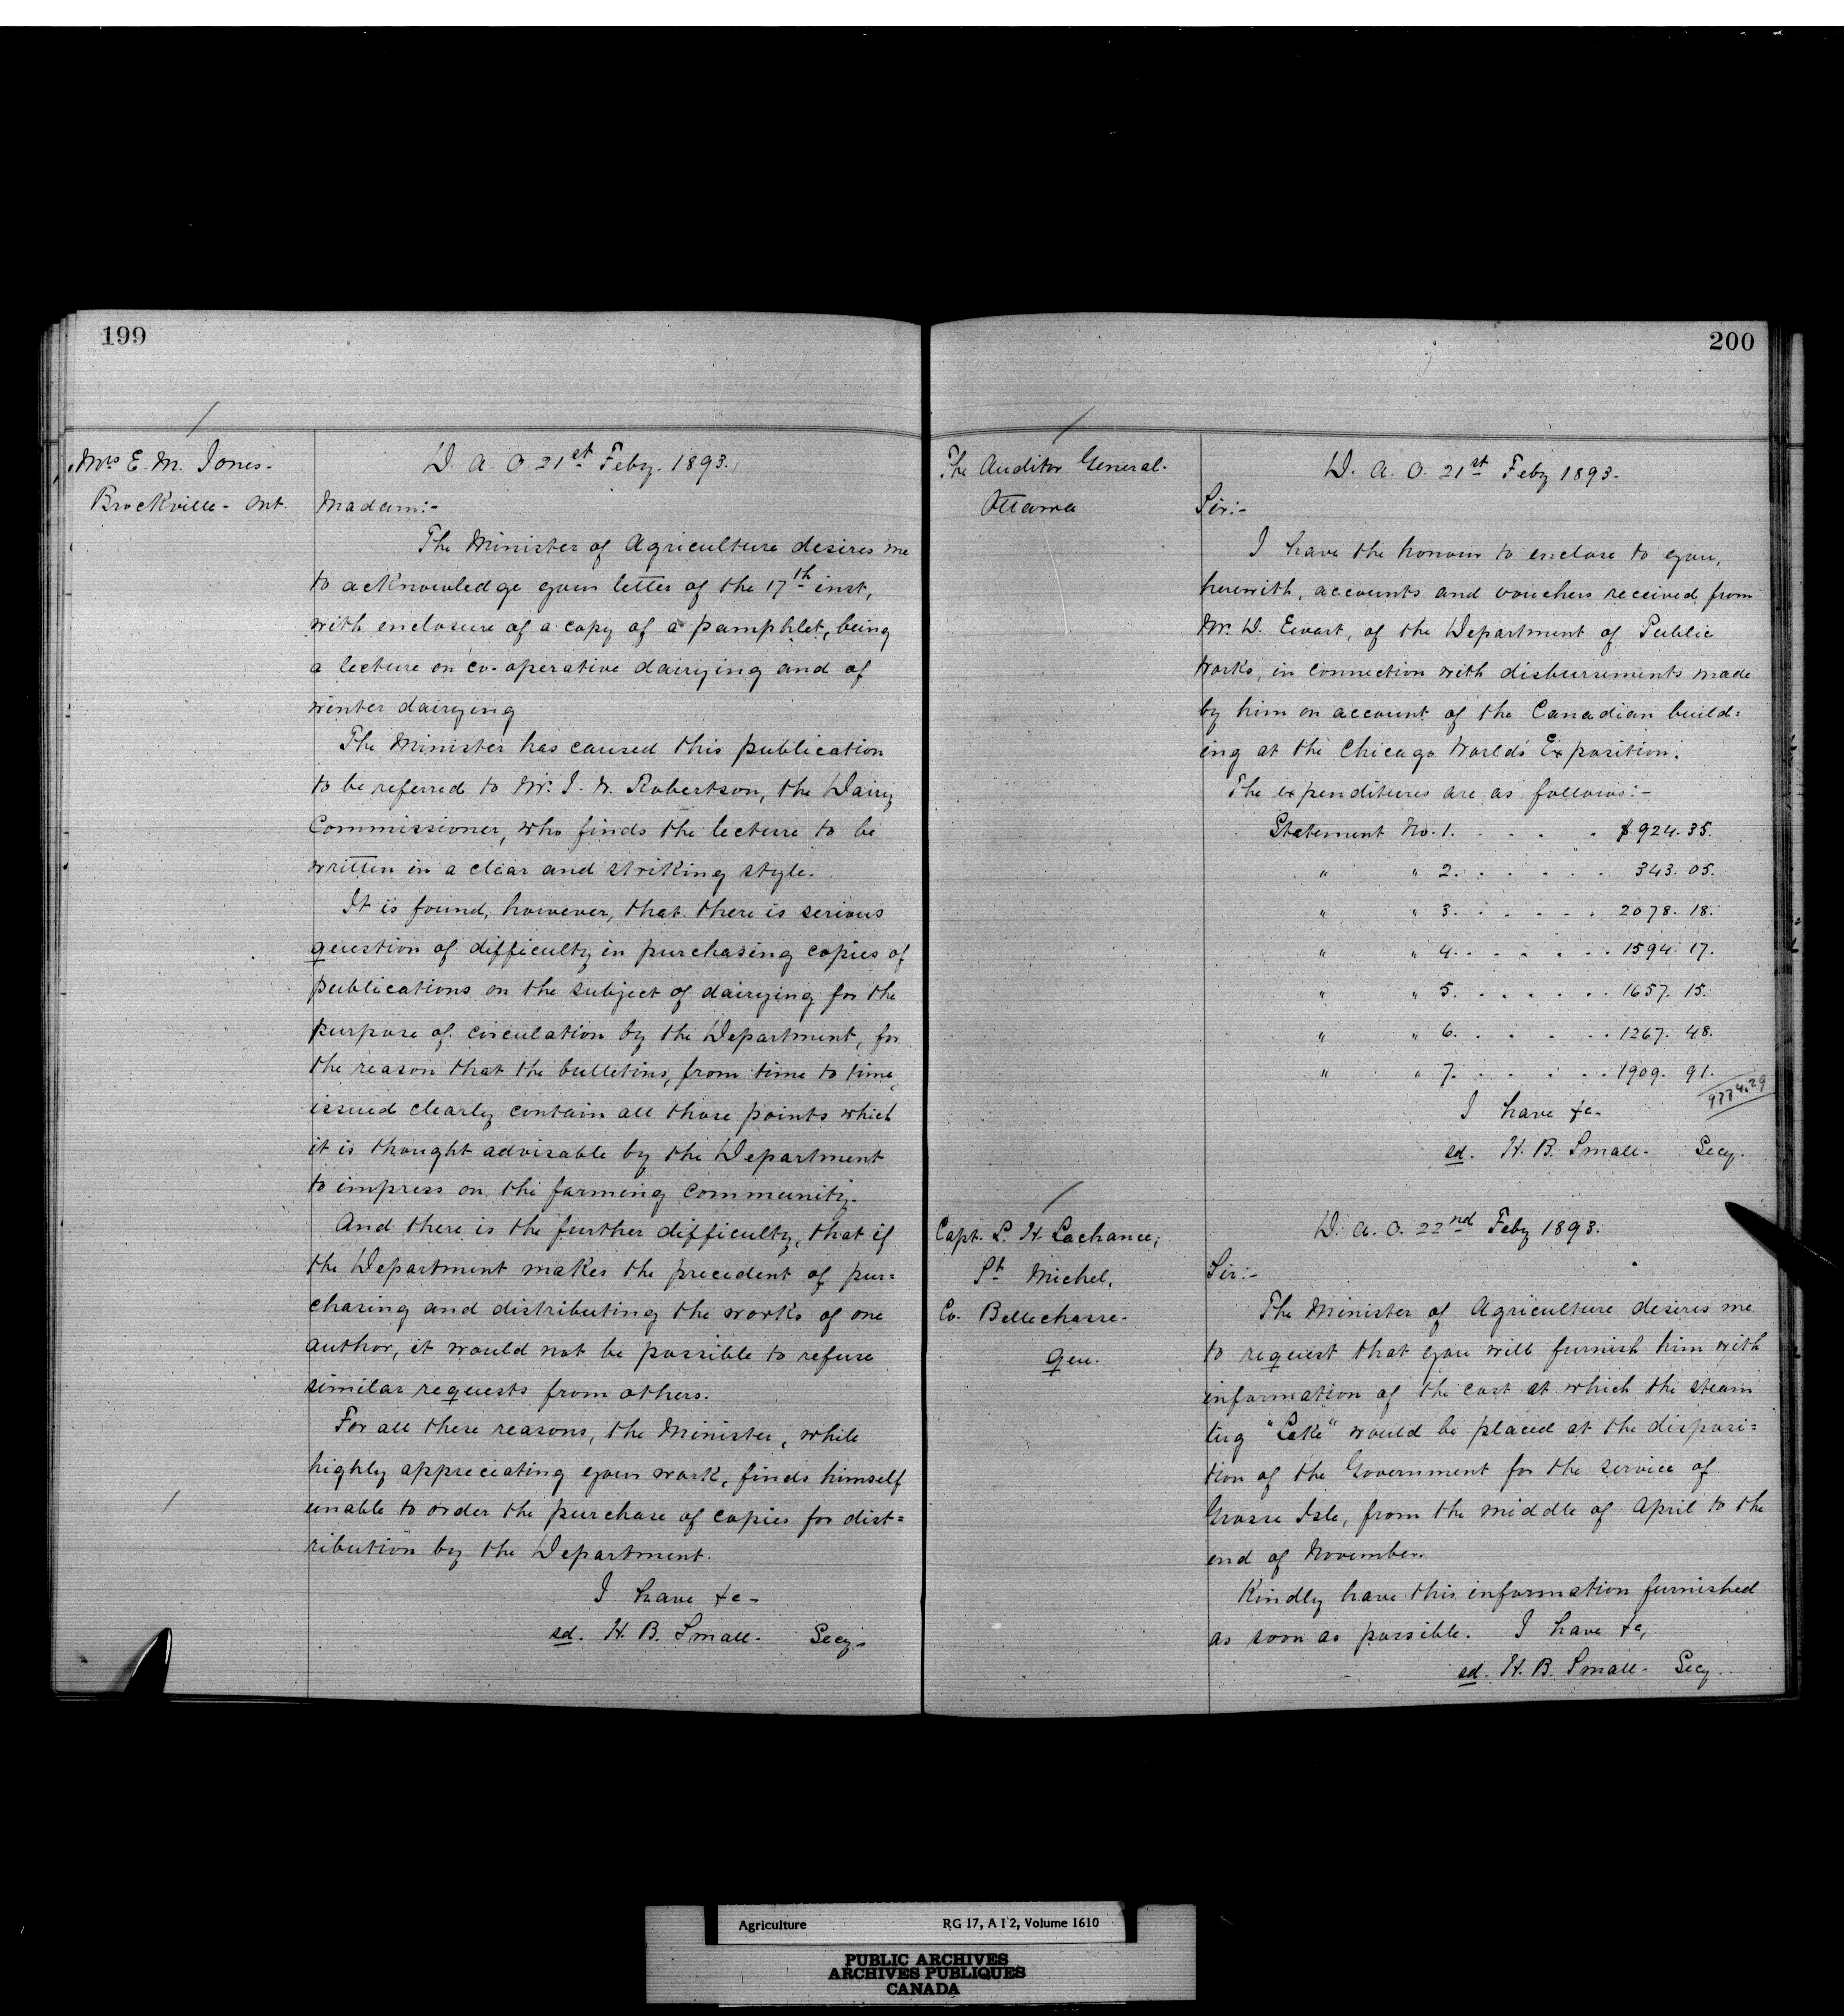 199
Mrs E. M. Jones.
Brockville. Ont.
D. A. O. 21st Feby. 1893.
Madam:-
The Minister of Agriculture desires me
to acknowledge your letter of the 17th inst,
with enclosure of a copy of a pamphlet, being
a lecture on co-operative dairying and of
winter dairying
The Minister has caused this publication
to be referred to Mr. J. W. Robertson, the Dairy
Commissioner, who finds the lecture to be
written in a clear and striking style.
It is found, however, that there is serious
question of difficulty in purchasing copies of
publications on the subject of dairying for the
purpose of circulation by the Department, for
the reason that the bulletins, from time to time,
issued clearly contain all those points which
it is thought advisable by the Department
to impress on the farming community.
And there is the further difficulty, that if
the Department makes the precedent of pur=
chasing and distributing the works of one
author, it would not be possible to refuse
similar requests from others.
For all these reasons, the Minister, while
highly appreciating your work, finds himself
unable to order the purchase of copies for dist=
ribution by the Department.
I have &c-
sd. H. B. Small. Secy.
200
The Auditor General.
Ottawa
D. A. O. 21st Feby 1893.
Sir:-
I have the honour to enclose to you,
herewith, accounts and vouchers received from
Mr. D. Ewart, of the Department of Public
Works, in connection with disbursements made
by him on account of the Canadian build=
ing at the Chicago World's Exposition.
The expenditures are as follows:-
Statement No. 1. . . . . $924. 35.
" " 2. . . . . . 343. 05.
" " 3. . . . . . 2078. 18.
" " 4. . . . . . 1594. 17.
" " 5. . . . . . 1657. 15.
" " 6. . . . . . 1267. 48.
" " 7. . . . . . 1909. 91.
9774.29
I have &c-
sd. H. B. Small. Secy.
Capt. L. H. Lachance,
St Michel,
Co. Bellechasse.
Que.
D. A. O. 22nd Feby 1893.
Sir:-
The Minister of Agriculture desires me
to request that you will furnish him with
information of the cost at which the steam
tug "Lake" would be placed at the disposi=
tion of the Government for the service of
Grosse Isle, from the middle of April to the
end of November.
Kindly have this information furnished
as soon as possible. I have &c,
sd. H. B. Small. Secy.
Agriculture RG 17, A I 2, Volume 1610
PUBLIC ARCHIVES
ARCHIVES PUBLIQUES
CANADA